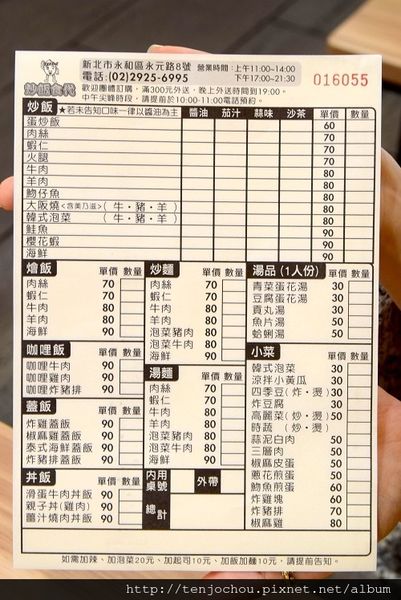 炒飯食代
新北市永和區永元路8號
營業時間：上午11:00~14:00
下午17:00~21:30
電話：(02)2925-6995
歡迎團體訂購，滿300元外送，晚上外送時間到19:00。
中午尖峰時段，請提前於10:00-11:00電話預約。
016055
炒飯 ★若未告知口味一律以醬油為主 醬油 茄汁 蒜味 沙茶 單價 數量
蛋炒飯 60
肉絲 70
蝦仁 70
火腿 70
牛肉 80
羊肉 80
魩仔魚 80
大阪燒<含美乃滋> (牛·豬·羊) 80
韓式泡菜 (牛·豬·羊) 80
鮭魚 90
櫻花蝦 90
海鮮 90
燴飯 單價 數量
肉絲 70
蝦仁 70
牛肉 80
羊肉 80
海鮮 90
咖哩飯 單價 數量
咖哩牛肉 90
咖哩雞肉 90
咖哩炸豬排 90
蓋飯 單價 數量
炸雞蓋飯 90
椒麻雞蓋飯 90
泰式海鮮蓋飯 90
炸豬排蓋飯 90
丼飯 單價 數量
滑蛋牛肉丼飯 90
親子丼(雞肉) 90
薑汁燒肉丼飯 90
炒麵 單價 數量
肉絲 70
蝦仁 70
牛肉 80
羊肉 80
泡菜豬肉 80
泡菜牛肉 80
海鮮 90
湯麵 單價 數量
肉絲 70
蝦仁 70
牛肉 80
羊肉 80
泡菜豬肉 80
泡菜牛肉 80
海鮮 90
內用桌號 外帶
總計
湯品 (1人份) 單價 數量
青菜蛋花湯 30
豆腐蛋花湯 30
貢丸湯 30
魚片湯 50
蛤蜊湯 50
小菜 單價 數量
韓式泡菜 30
涼拌小黃瓜 30
四季豆(炸·燙) 30
炸豆腐 30
高麗菜(炒·燙) 50
時蔬 (炒·燙)
蒜泥白肉 50
三層肉 50
椒麻皮蛋 50
蔥花煎蛋 50
魩魚煎蛋 60
炸雞塊 60
炸豬排 70
椒麻雞 80
如需加辣、加泡菜20元、加起司10元、加飯加麵10元，請提前告知。
http://tenjochou.pixnet.net/album